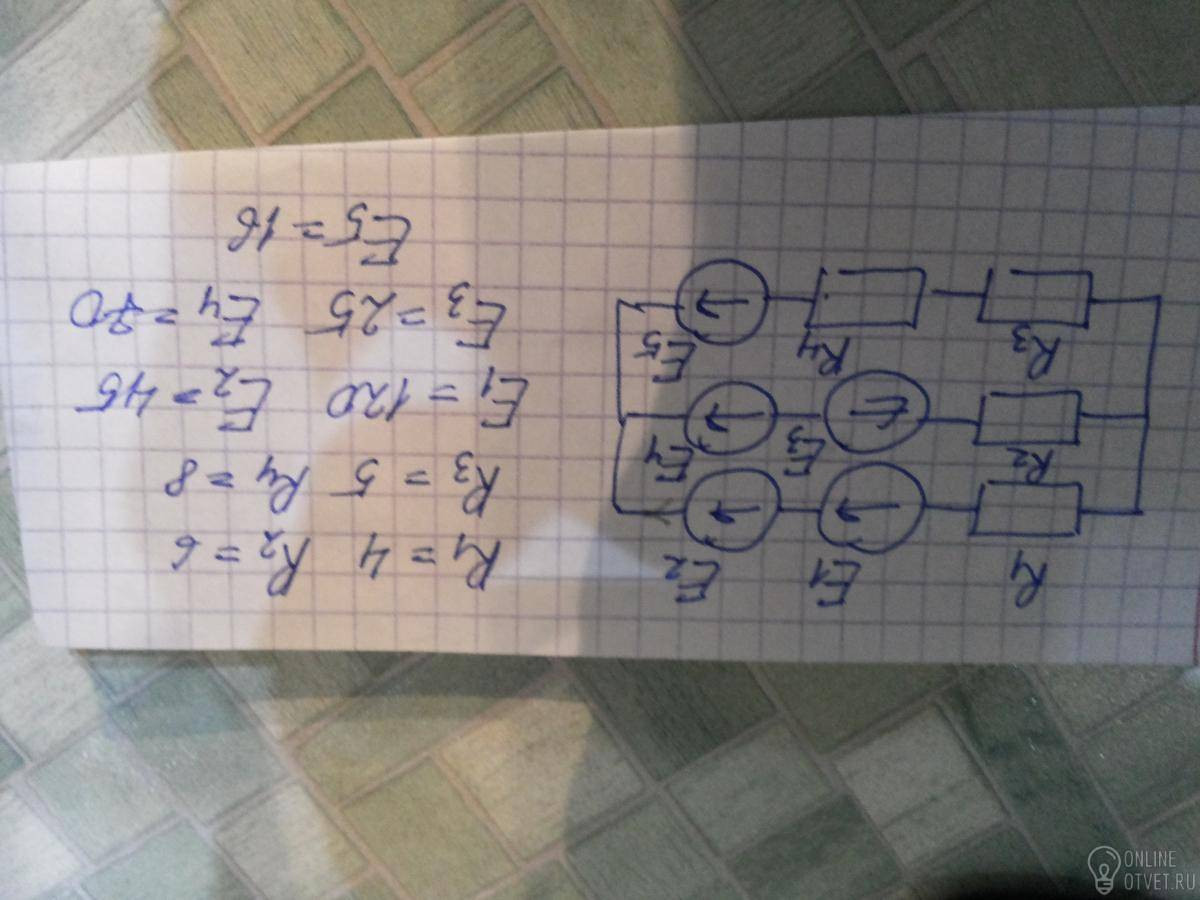 R1 E1 E2
R2 E3 E4
R3 R4 E5
R1 = 4 R2 = 6
R3 = 5 R4 = 8
E1 = 120 E2 = 45
E3 = 25 E4 = 70
E5 = 18
ONLINE
OTVET.RU